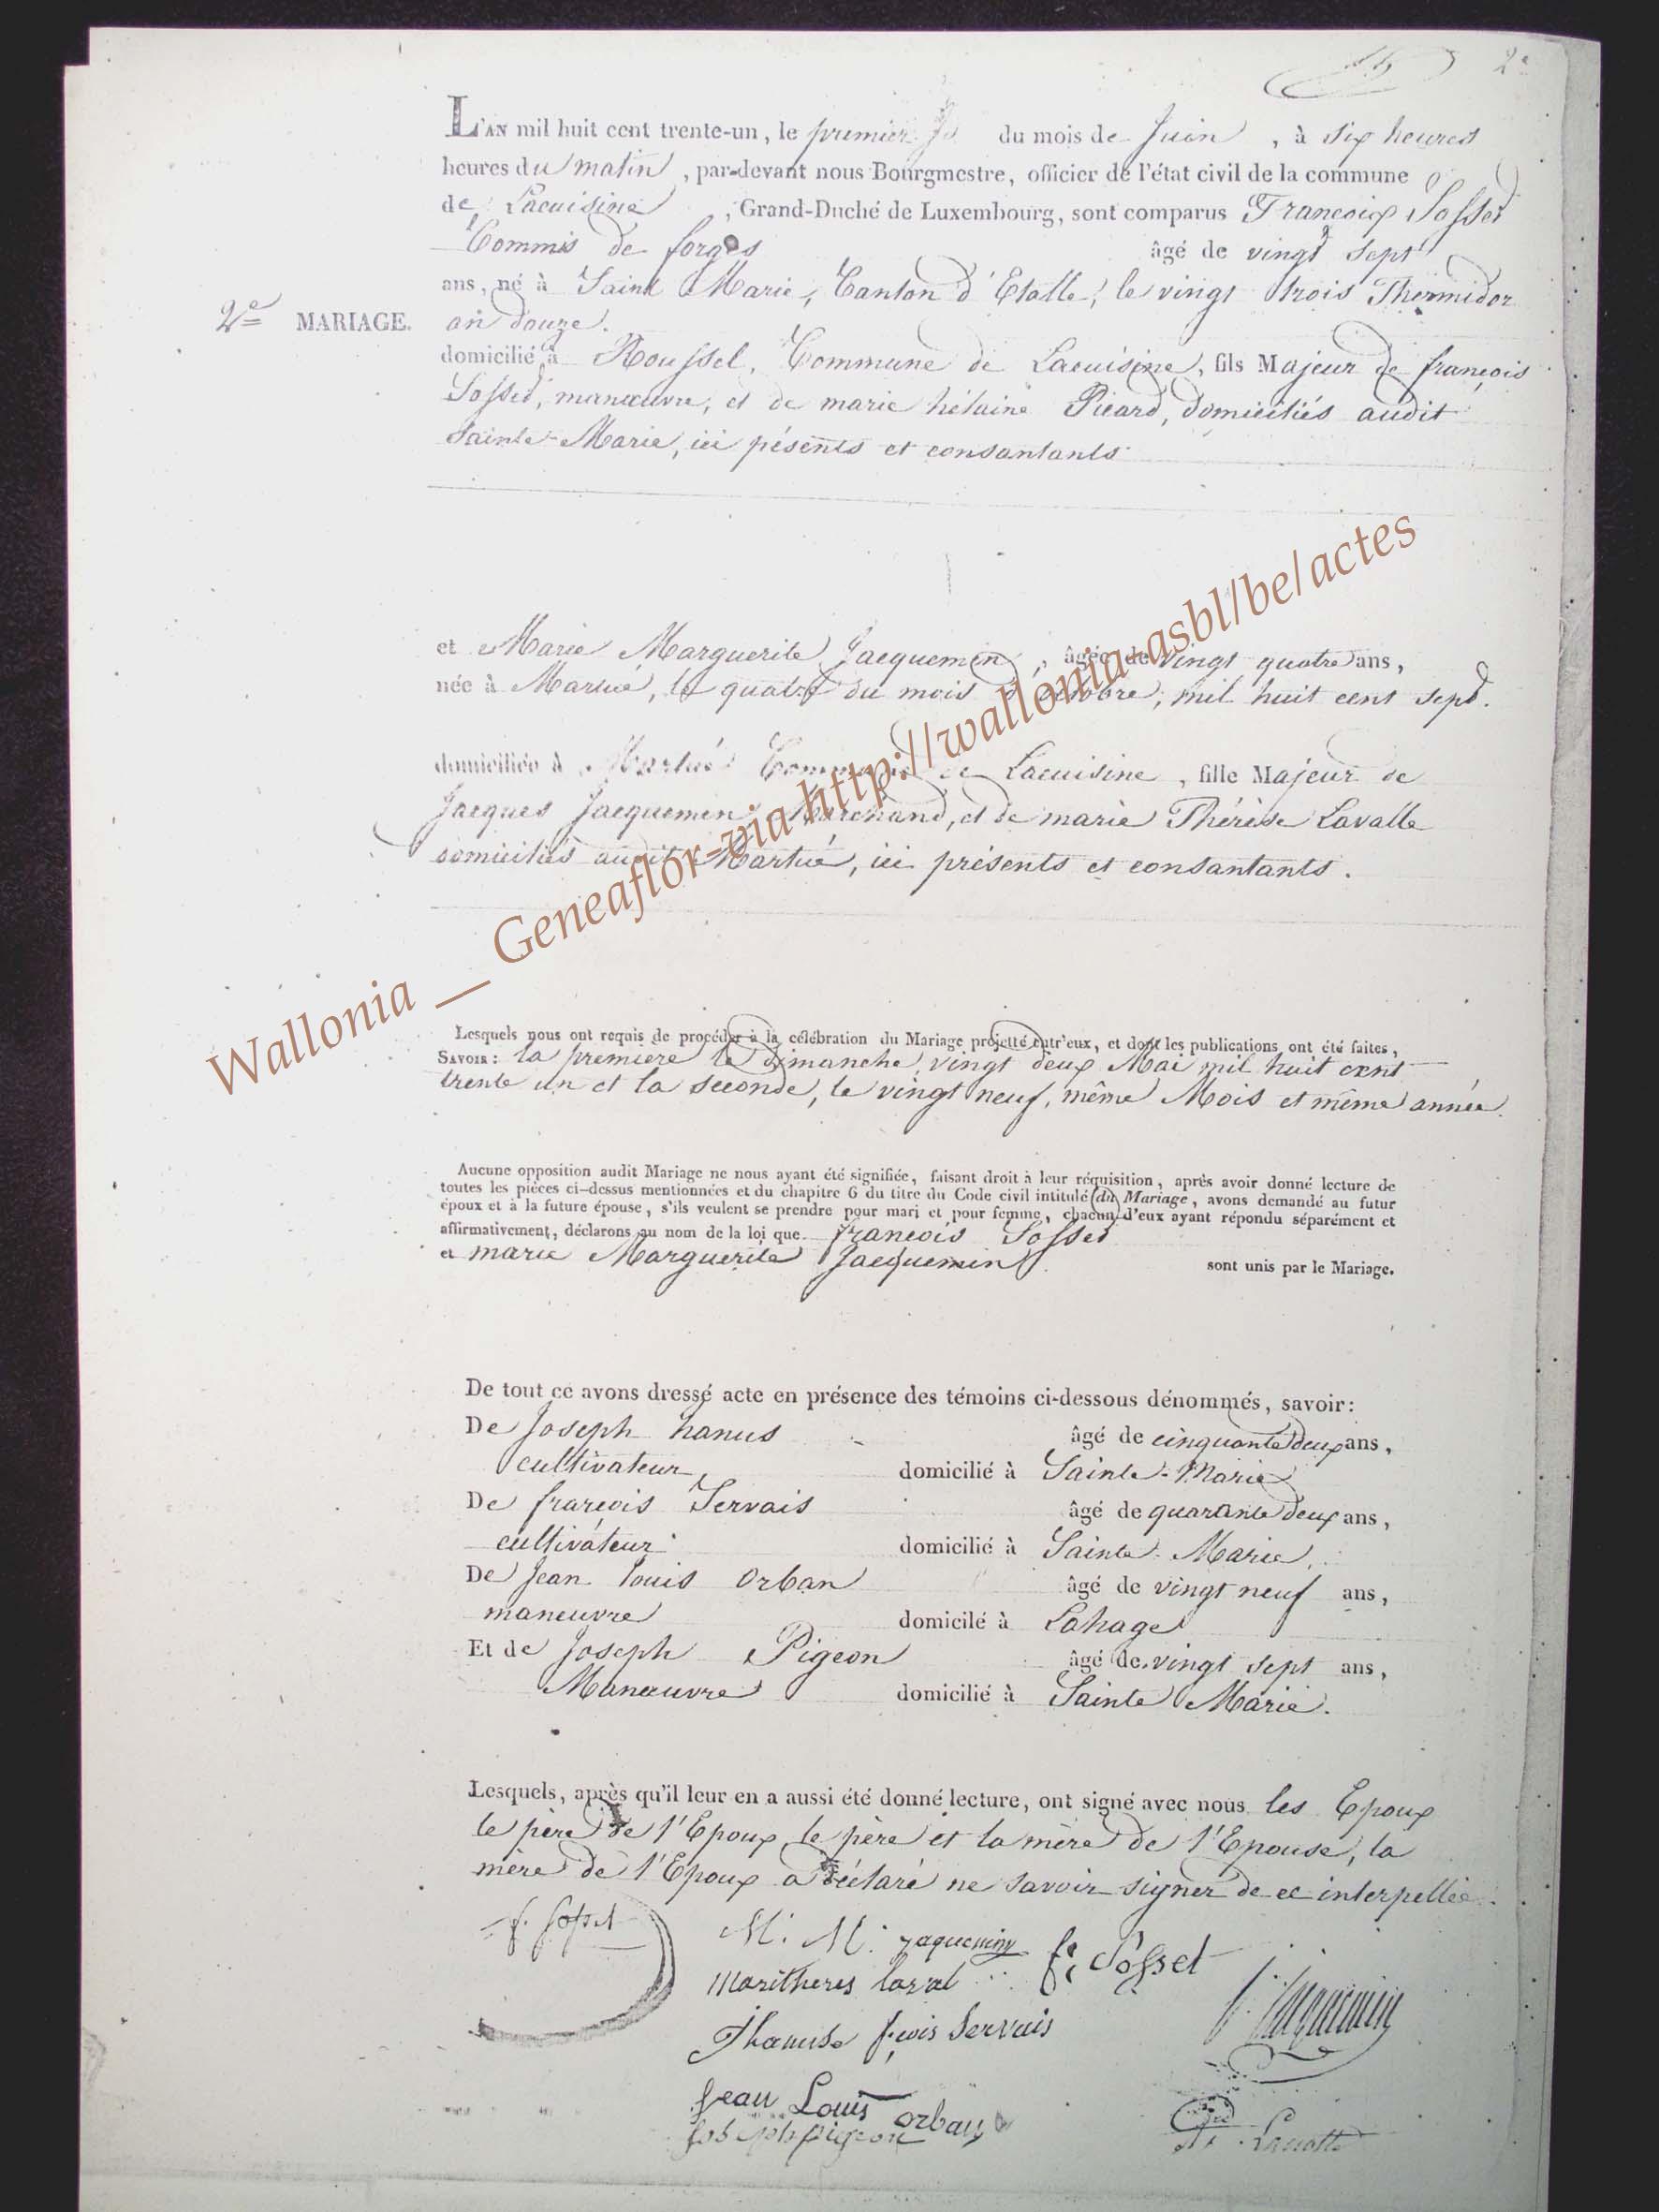 2e
L'AN mil huit cent trente-un, le premier du mois de Juin, à six heures
heures du matin, par-devant nous Bourgmestre, officier de l'état civil de la commune
de Lacuisine, Grand-Duché de Luxembourg, sont comparus François Sosset
Commis de forges âgé de vingt sept
ans, né à Saint Marie, Canton d'Etalle, le vingt trois Thermidor
2e MARIAGE. an douze.
domicilié à Roussel, Commune de Lacuisine, fils Majeur de françois
Sosset, manœuvre, et de marie hélaine Picard, domiciliés audit
Sainte-Marie, ici pésents et consantants
et Marie Marguerite Jacquemin, âgée de vingt quatre ans,
née à Martué, le quatre du mois d' mil huit cent sept.
domiciliée à Martué Commune de Lacuisine, fille Majeur de
Jacques Jacquemin Marchand, et de marie Thérèse Lavalle
domiciliés audit Martué, ici présents et consantants.
Wallonia __ Geneaflor-via http://wallonia-asbl/be/actes
Lesquels nous ont requis de procéder à la célébration du Mariage projetté entr'eux, et dont les publications ont été faites,
SAVOIR: la premiere le dimanche, vingt deux Mai mil huit cent
trente un et la seconde, le vingt neuf, même Mois et même année.
Aucune opposition audit Mariage ne nous ayant été signifiée, faisant droit à leur réquisition, après avoir donné lecture de
toutes les pièces ci-dessus mentionnées et du chapitre 6 du titre du Code civil intitulé du Mariage, avons demandé au futur
époux et à la future épouse, s'ils veulent se prendre pour mari et pour femme, chacun d'eux ayant répondu séparément et
affirmativement, déclarons au nom de la loi que françois Sosset
et marie Marguerite Jacquemin sont unis par le Mariage.
De tout ce avons dressé acte en présence des témoins ci-dessous dénommés, savoir:
De Joseph hanus âgé de cinquante deux ans,
cultivateur, domicilié à Sainte-Marie
De françois Servais âgé de quarante deux ans,
cultivateur domicilié à Sainte-Marie.
De Jean Louis Orban âgé de vingt neuf ans,
maneuvre domicilé à Lahage
Et de Joseph Pigeon âgé de vingt sept ans,
Manœuvre domicilié à Sainte Marie.
Lesquels, après qu'il leur en a aussi été donné lecture, ont signé avec nous les Epoux
le père de l'Epoux, le père et la mère de l'Epouse, la
mère de l'Epoux a déclaré ne savoir signer de ce interpellée.
f. Sosset
M. M. jaquemin f. Sosset
Maritheres laval J. Jacquemin
Jhanus f.cois Servais
Jean Louis Orban
Joseph pigeon